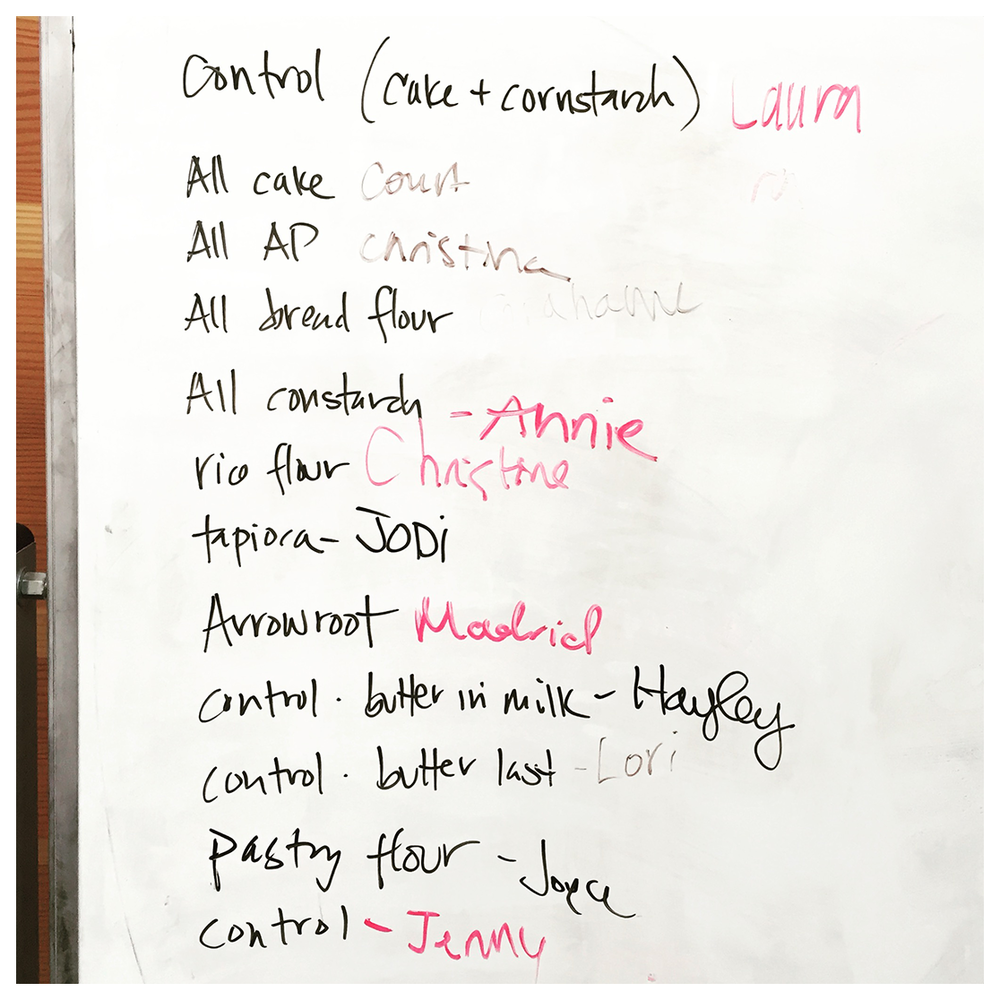 Control (cake + cornstarch) Laura
All cake Court
All AP Christina
All bread flour
All constarch - Annie
rice flour Christine
tapioca - JODi
Arrowroot Madrid
control · butter in milk - Hayley
control · butter last - Lori
Pastry flour - Joyce
control - Jenny